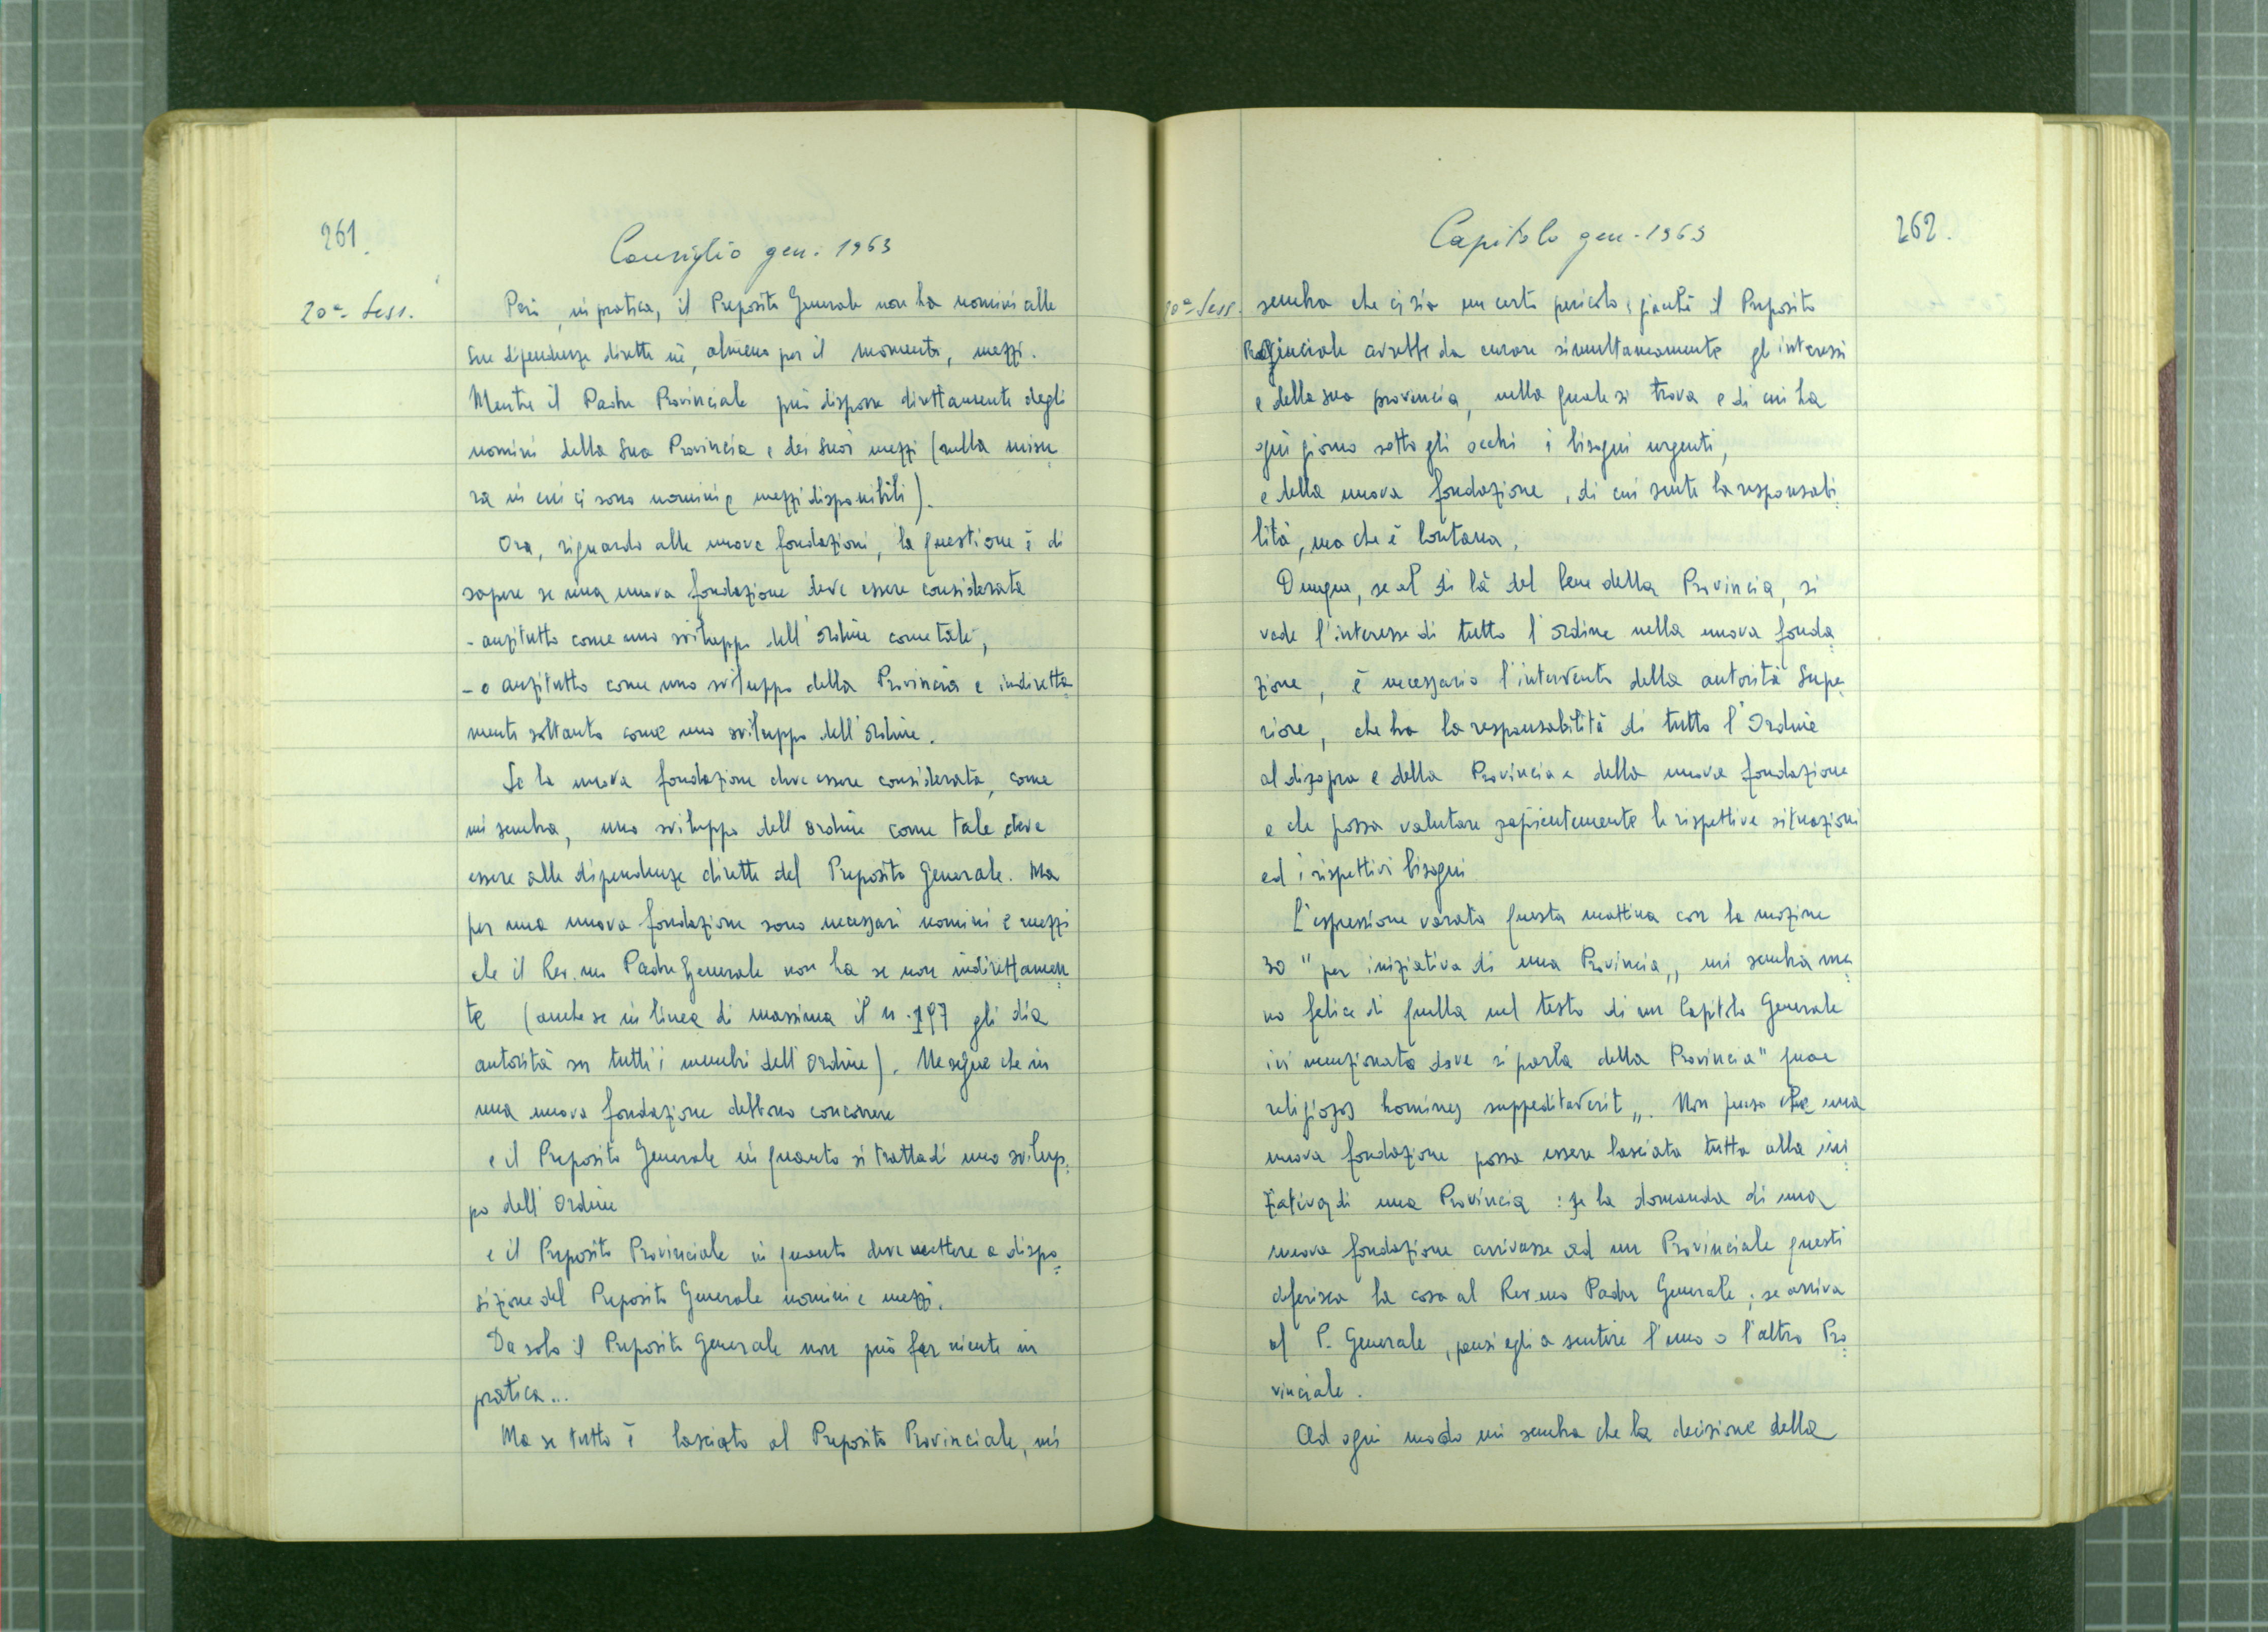 261.
Consiglio gen. 1963
20ª Sess.
Però, in pratica, il Preposito Generale non ha uomini alle
sue dipendenze dirette né, almeno per il momento, mezzi.
Mentre il Padre Provinciale può disporre direttamente degli
uomini della Sua Provincia e dei Suoi mezzi (nella misu
ra in cui ci sono uomini e mezzi disponibili).
Ora, riguardo alle nuove fondazioni, la questione è di
sapere se una nuova fondazione deve essere considerata
- anzitutto come uno sviluppo dell'Ordine come tale,
- o anzitutto come uno sviluppo della Provincia e indiretta
mente soltanto come uno sviluppo dell'Ordine.
Se la nuova fondazione deve essere considerata, come
mi sembra, uno sviluppo dell'Ordine come tale, deve
essere alle dipendenze dirette del Preposito Generale. Ma
per una nuova fondazione sono necessari uomini e mezzi
che il Rev.mo Padre Generale non ha se non indirettamen
te (anche se in linea di massima il n. 197 gli dia
autorità su tutti i membri dell'Ordine). Ne segue che in
una nuova fondazione debbono concorrere
e il Preposito Generale in quanto si tratta di uno svilup
po dell'Ordine
e il Preposito Provinciale in quanto deve mettere a dispo
sizione del Preposito Generale uomini e mezzi.
Da solo il Preposito Generale non può far niente in
pratica...
Ma se tutto è lasciato al Preposito Provinciale, mi
Capitolo gen. 1963
262.
20ª Sess.
sembra che ci sia un certo pericolo, giacché il Preposito
Provinciale avrebbe da curare simultaneamente gl'interessi
e della sua provincia, nella quale si trova e di cui ha
ogni giorno sotto gli occhi i bisogni urgenti,
e della nuova fondazione, di cui sente la responsabi
lità, ma che è lontana.
Dunque, se al di là del bene della Provincia, si
vede l'interesse di tutto l'Ordine nella nuova fonda
zione, è necessario l'intervento della autorità Supe
riore, che ha la responsabilità di tutto l'Ordine
al disopra e della Provincia e della nuova fondazione
e che possa valutare sapientemente le rispettive situazioni
ed i rispettivi bisogni.
L'espressione varata questa mattina con la mozione
30 "per iniziativa di una Provincia,, mi sembra me
no felice di quella nel testo di un Capitolo Generale
ivi menzionato dove si parla della Provincia "quae
religiosos homines suppeditaverit,,. Non penso che una
nuova fondazione possa essere lasciata tutta alla ini
ziativa di una Provincia: se la domanda di una
nuova fondazione arrivasse ad un Provinciale questi
deferisca la cosa al Rev.mo Padre Generale; se arriva
al P. Generale, pensi egli a sentire l'uno o l'altro Pro
vinciale.
Ad ogni modo mi sembra che la decisione della